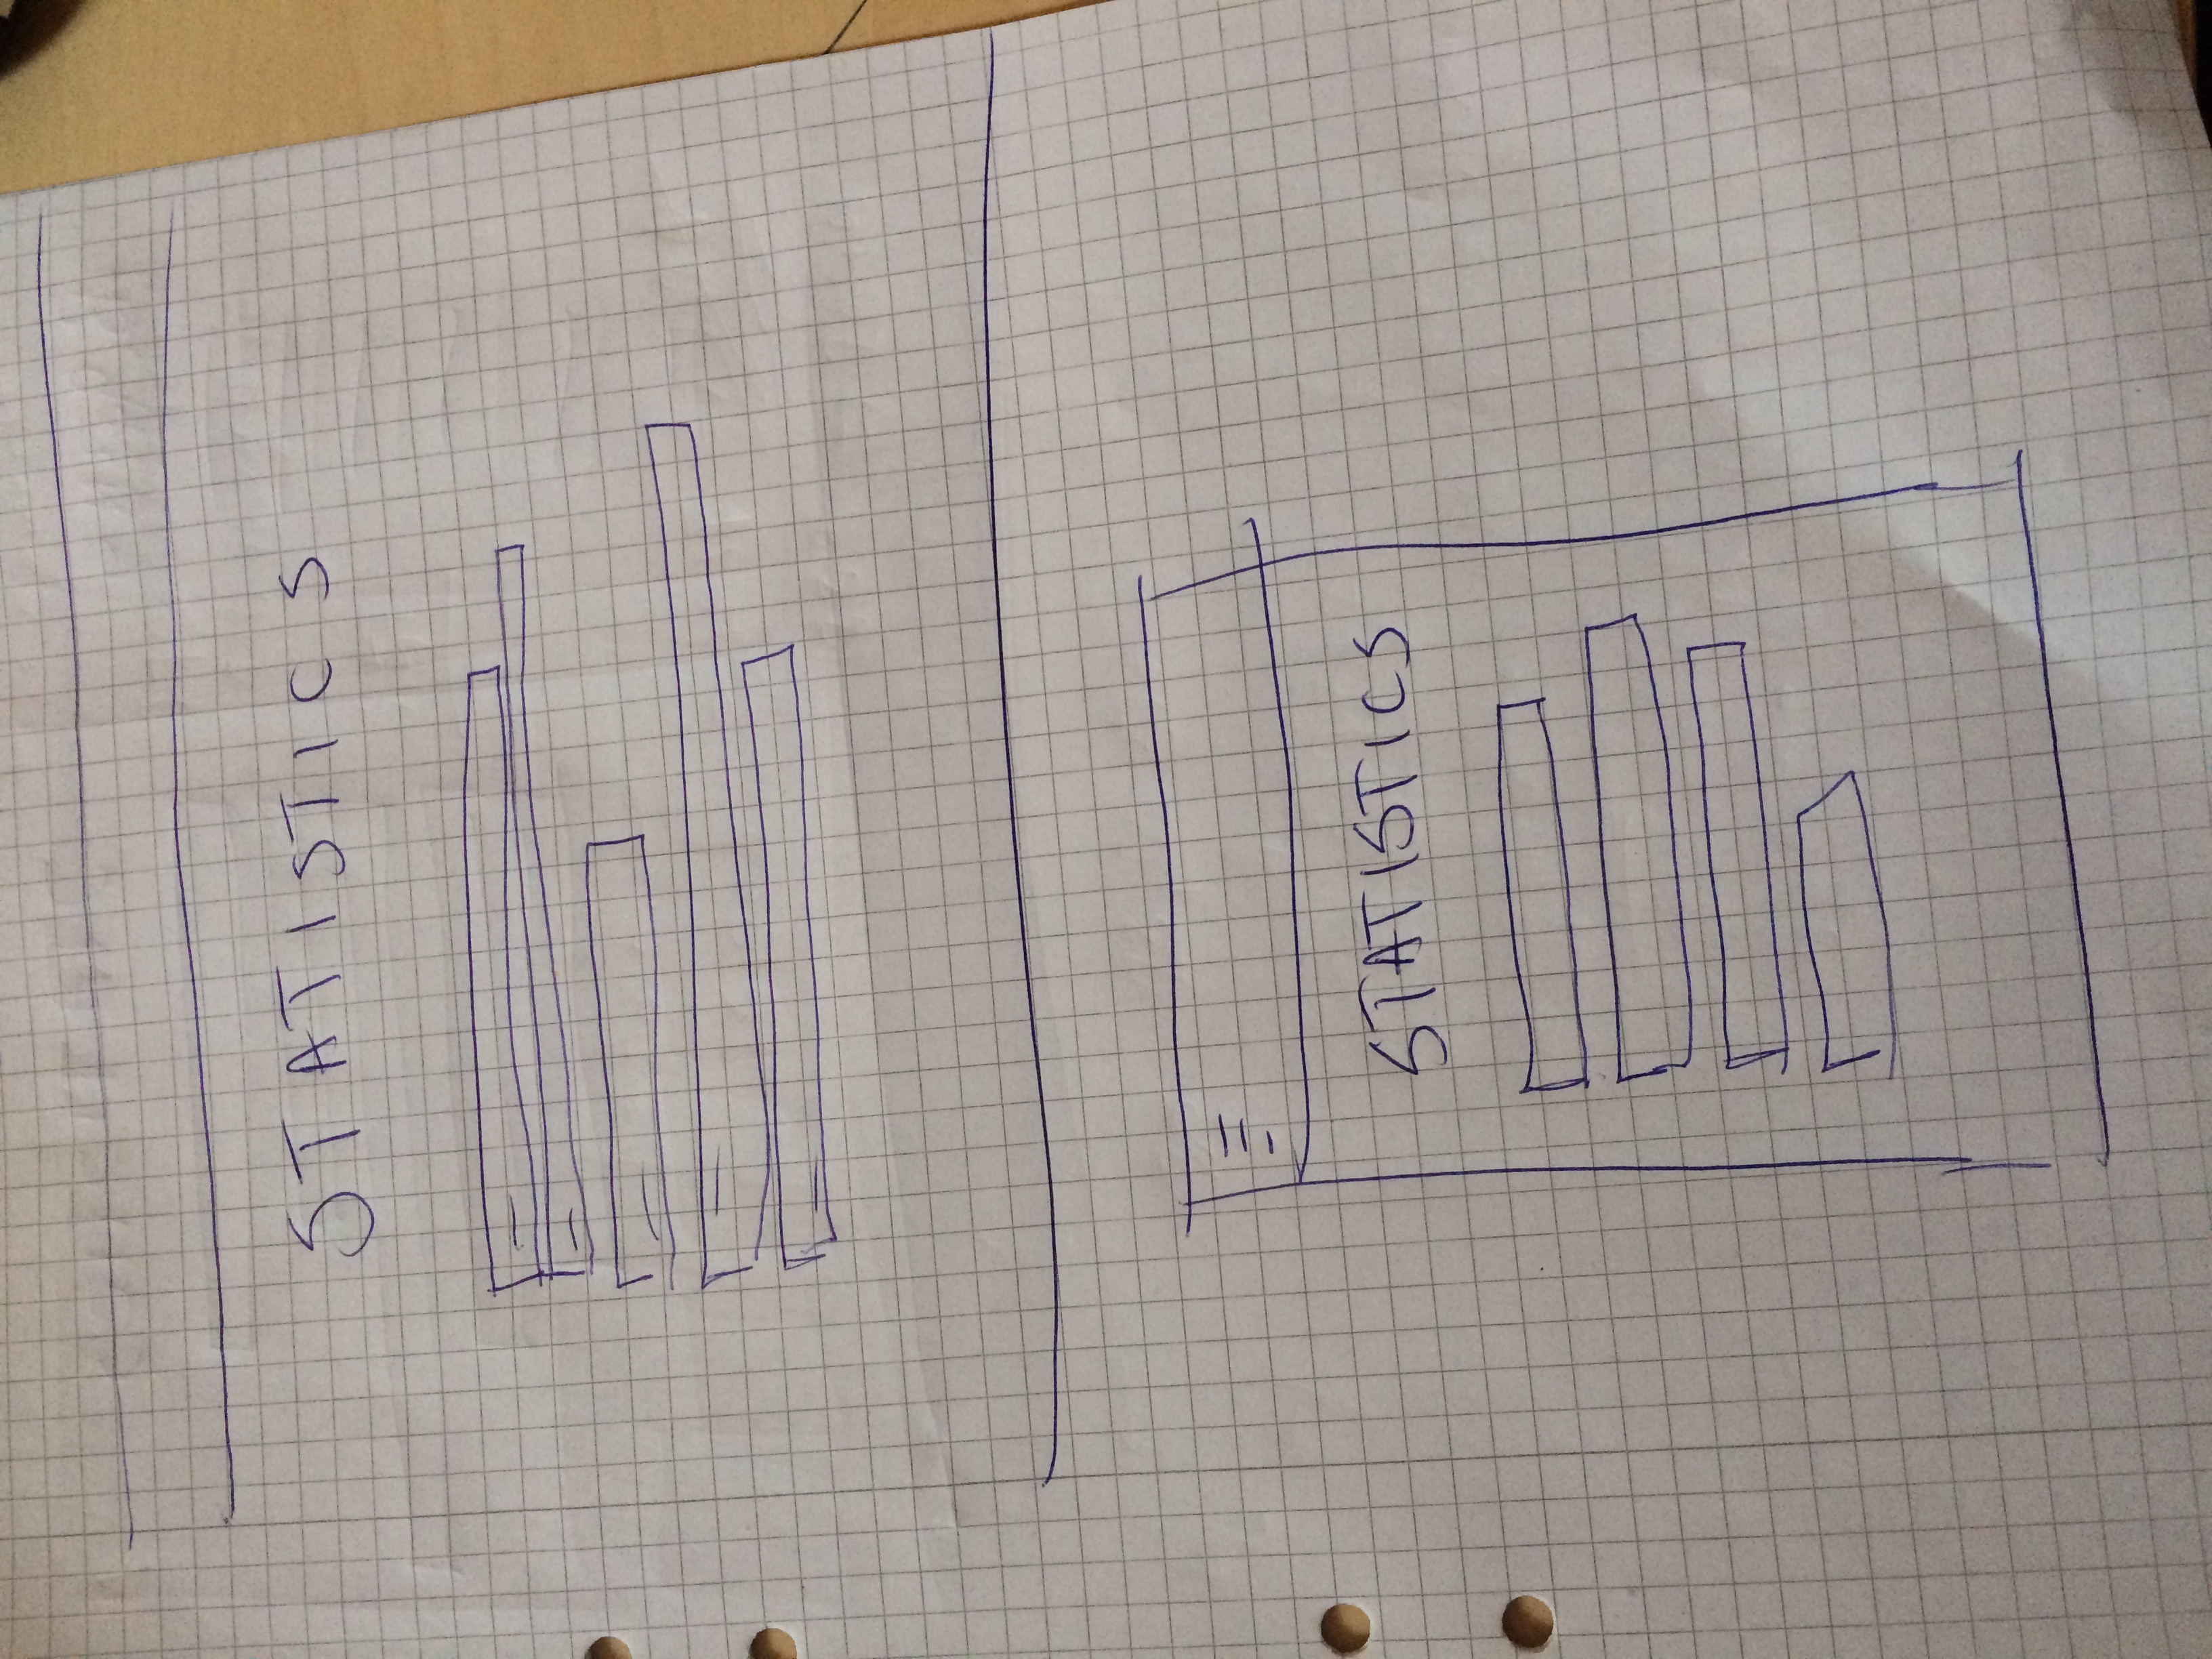 STATISTICS
STATISTICS